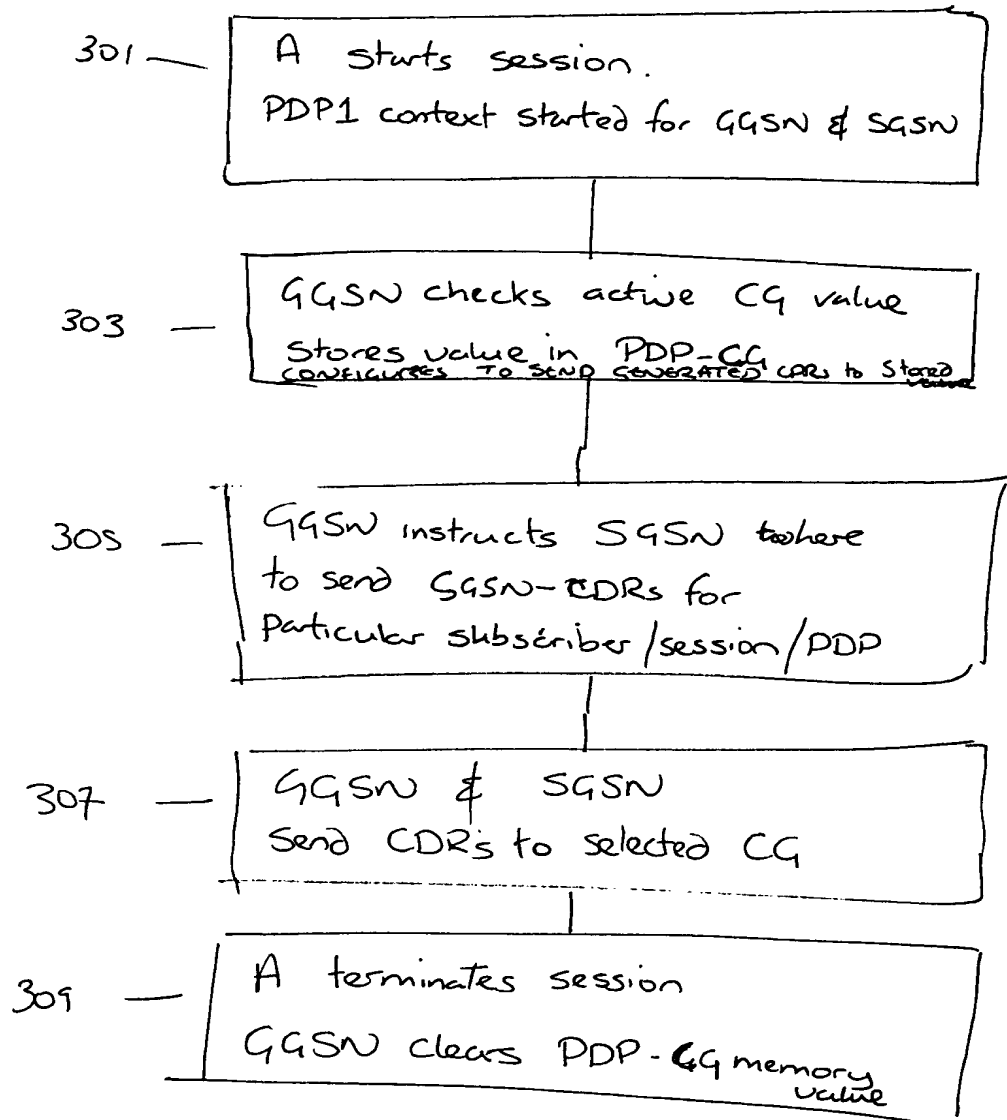 301
A starts session.
PDP1 context started for GGSN & SGSN
303
GGSN checks active CG value
Stores value in PDP-CG
CONFIGURES TO SEND GENERATED CDRs to Stored
value
305
GGSN instructs SGSN where
to send SGSN-CDRs for
Particular subscriber/session/PDP
307
GGSN & SGSN
Send CDR's to selected CG
309
A terminates session
GGSN clears PDP-CG memory
value